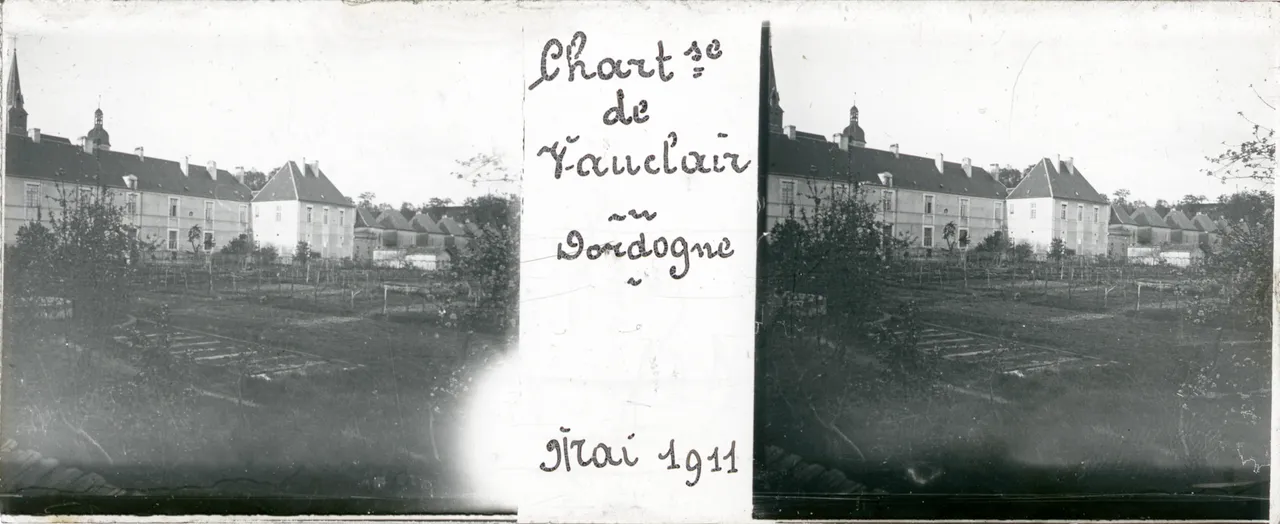 Chart se
de
Vauclair
Dordogne
Mai 1911